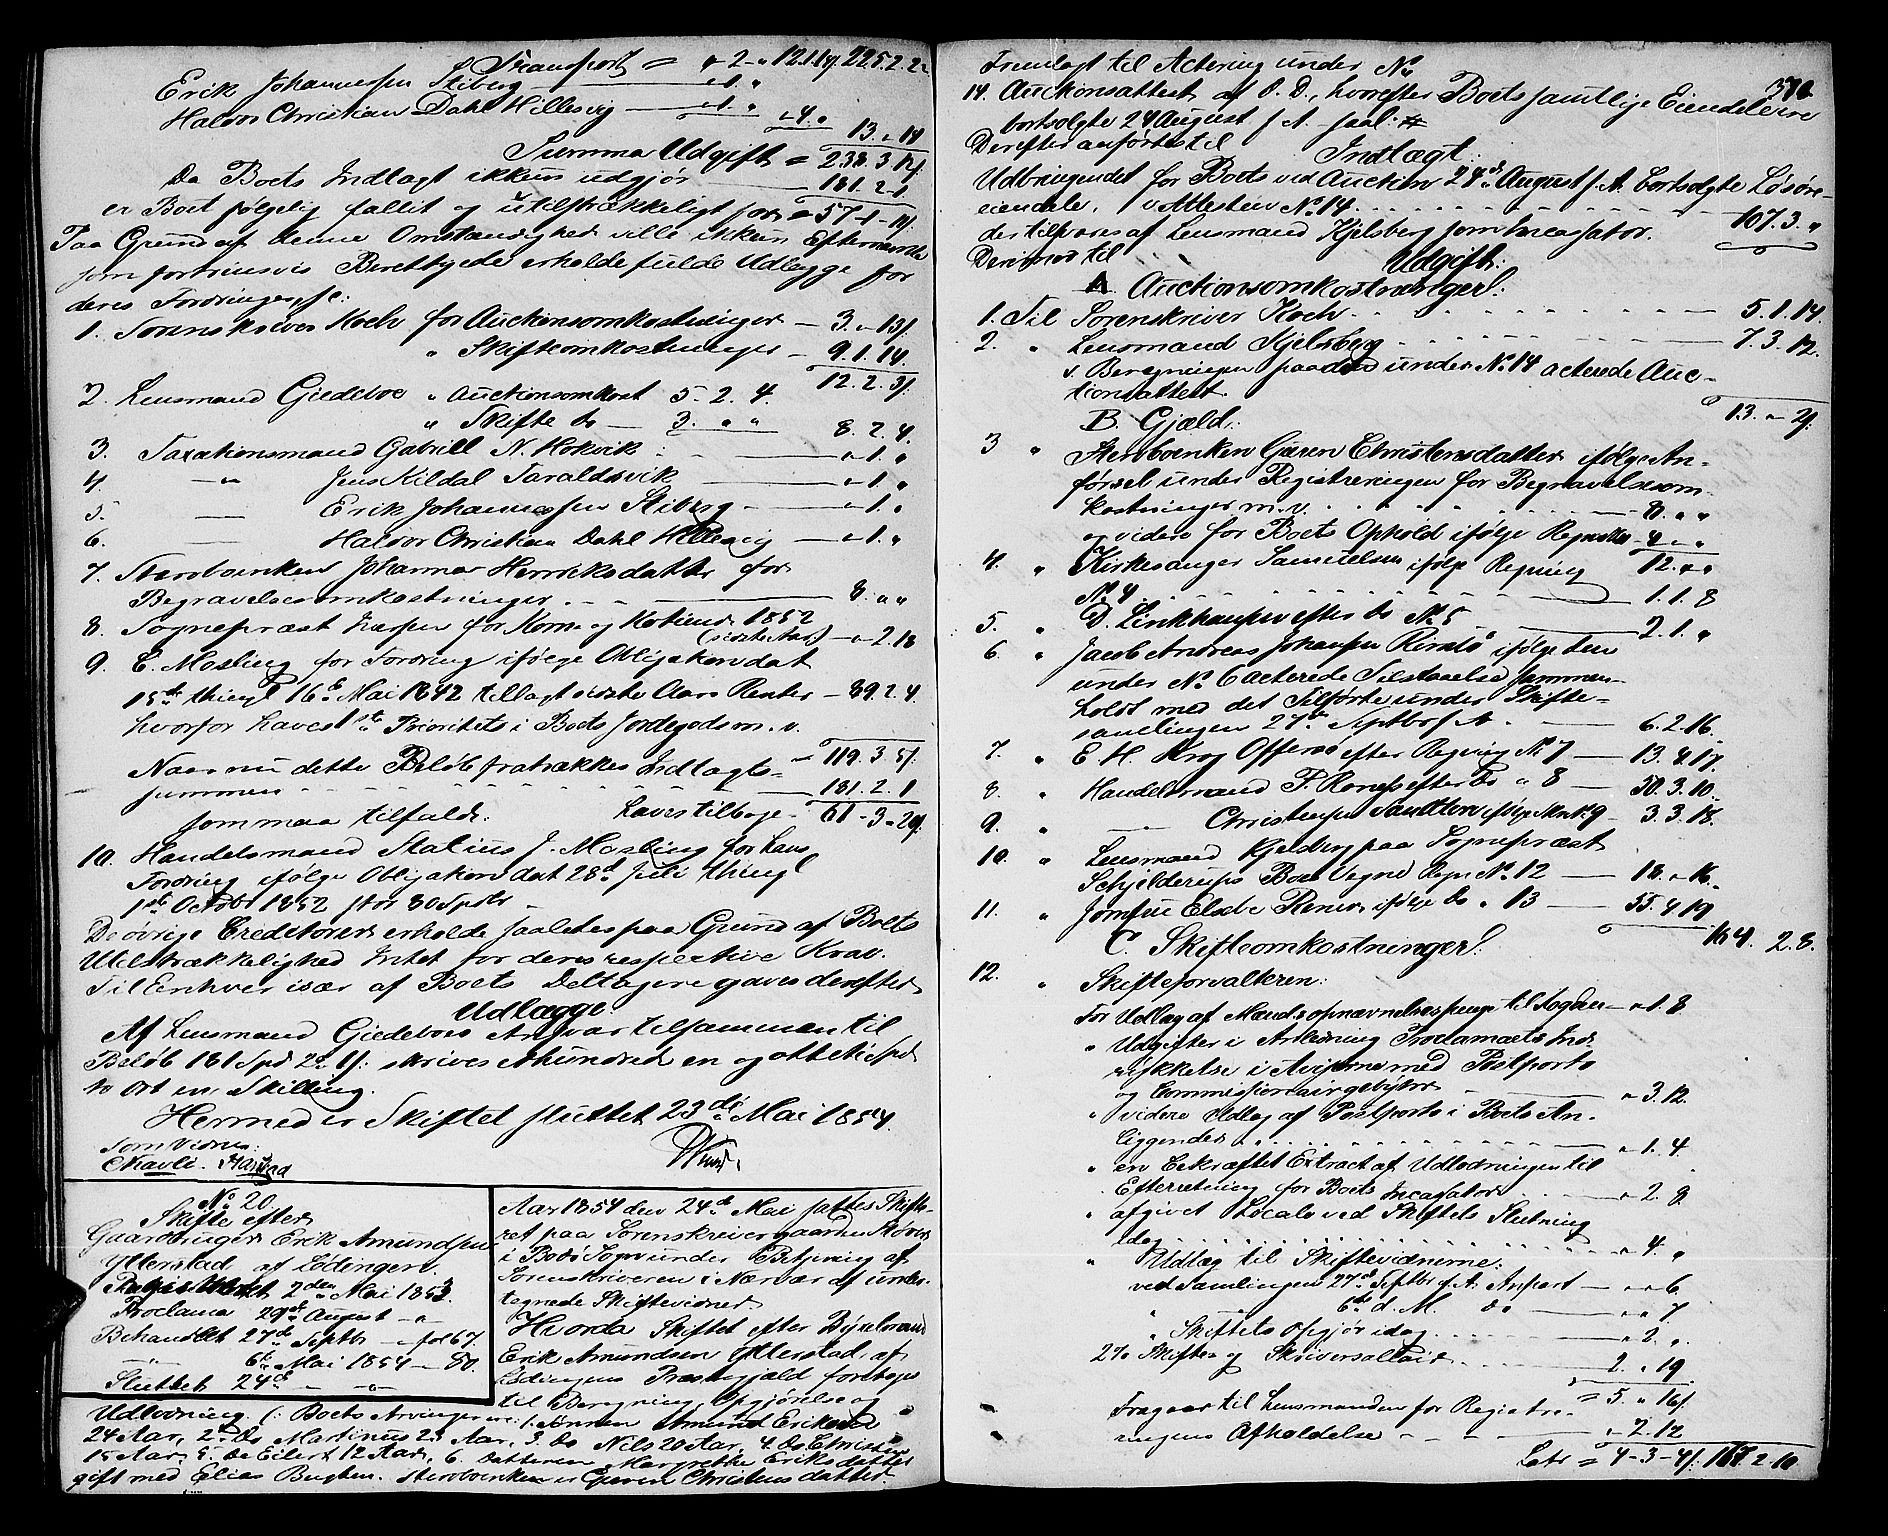 Transport = " 2 " 121.1.19. 225.2.22
Erik Johannessen Stiberg — " 1. "
Halvor Christian Dahl Hillesvig — " 1. " " 4. "
13. " 19
Summa Udgift = 238.3.17/.
Da Boets Indtægt ikkun udgjør — 181.2.1.
er Boet følgelig fallit og utilstrækkeligt for = 57-1-16/.
Paa Grund af denne Omstændighed ville ikkun Efternævnte
som fortrinsvis Berettigede erholde fulde Udlægge for
deres Fordringer, sc:
1. Sorenskriver Koch for Auctionsomkostninger — 3. " 13/.
" Skifteomkostninger — 9.1.14.
12.2.3/.
2. Lensmand Giedeboe " Auctionsomkost 5.2.4.
" Skifte do — 3. " " 8.2.4.
3. Taxationsmand Gabriel N. Hokvik — " 1. "
4. — " — Jens Kildal Taraldsvik — " 1. "
5. — Erik Johannessen Stiberg — " 1. "
6. — Halvor Christian Dahl Hillesvig — " 1. "
7. Sterboenken Johanna Henriksdatter for
Begravelsesomkostninger — 8. " "
8. Sogneprest for Korn og 1852
(sidste Aar) — " 2.18
9. C. Mosling for Fordring ifølge Obligation dat
15de thingl 16de Mai 1842 tillagt sidste Aars Renter — 89.2.4.
hvorfor haves 1ste Prioritets i Boets Jordegods m. v.
119.3.5/.
Naar nu dette Beløb fratrækkes Indtægts-
summen — 181.2.1
haves tilbage — 61-3-20/.
som maa tilfalde:
10. Handelsmand Statius J. Mosling for hans
Fordring ifølge Obligation dat 28de Juli thingl
1ste October 1852 stor 80 Spdr —
De øvrige Creditorer erholde saaledes paa Grund af Boets
Utilstrækkelighed Intet for deres respective Krav.
Til Enhver især af Boets Deltagere gaves derefter
Udlægge:
Af Lensmand Giedeboes Ansvar tilsammen til
Beløb 181 Spd 2 1/: skrives Ethundred en og otteti Spd
to ort en Skilling.
Hermed er Skiftet sluttet 23de Mai 1854.
Som Vidner:
No 20
Skifte efter
Gaardbruger Erik Amundsen
Ytterstad af Lødingen.
Registreret 2den Mai 1853.
Proclama 29de August — " —
Behandlet 27de Septbr — fol 67.
— " — 6te Mai 1854 — 80.
Sluttet 24de — " —
Aar 1854 den 24de Mai sattes Skifte-
ret paa Sorenskrivergaarden Støver
i Bodø Sogn under Betjening af
Sorenskriveren i Nærvær af under-
tegnede Skiftevidner
Hvorda Skiftet efter
Erik Amundsen Ytterstad af
Lødingens Præstegjæld foretages
til Beregning, Opgjørelse og
Udlodning. (: Boets Arvinger ere: 1. Sønnen Amund Eriksen
24 Aar, 2. Do Martinus 23 Aar, 3. Do Nils 20 Aar, 4. Do Christen
15 Aar, 5. Do Eilert 12 Aar, 6. Datteren Margrethe Eriksdatter
gift med Elias Sterboenken er Gjæren Christensdatter
Fremlagt til Actering under No
14. Auctionsattest af S. D., hvorefter Boets samtlige Eiendele ere
bortsolgte 24 August f. A.
Derefter anførtes til Indtægt:
Udbringendet for Boets ved Auction 24de August f. A. bortsolgte Løsøre-
eiendele, v Attesten No 14 — 107.3. "
der tilsvares af Lensmand Kjelsberg som Incassator.
Derimod til Udgift:
A. Auctionsomkostninger:
1. Til Sorenskriver Koch — 5.1.14.
2. " Lensmand Kjelsberg — 7.3.12.
v. Beregningen paa den under No 14 acterede Auc-
tionsattest.
13. " 2/.
B. Gjæld.
3 " Sterboenken Gjæren Christensdatter ifølge An-
førsel under Registreringen for Begravelsesom-
kostninger m. v. — 8. " "
og videre for Boets Ophold ifølge — 4 " "
12. " "
4. " Kirkesanger Samuelsen ifølge Regning
No 4 — 1.1.8
5. " D. efter do No 5 — 2.1. "
6. " Jacob Andreas Johansen ifølge den
under No 6 acterede Tilstaaelse sammen-
holdt med det Tilførte under Skifte-
samlingen 27de Septbr f. A. — 6.2.16.
7. " E. H. Krog Offersø efter Regning No 7 — 13.4.17.
8. " Handelsmand P. efter do " 8 — 50.3.10.
9. " — Christensen Sandtorv ifølge No 9 — 3.3.18.
10. " Lensmand Kjelsberg paa Sogneprest
Schjelderups Boes Vegne Regn No 12 — 18. " 16.
11. " Jomfru Elsebe ifølge do " 13 — 55.4.19
164. 2.8.
C. Skifteomkostninger:
12. " Skifteforvalteren:
For Udlæg af Mandsopnævnelsespenge til Fogden — " 1.8
" Udgifter i Anledning Proclamaets Ind-
rykkelse i Aviserne med Postporto
og Commissionairgebyhr — " 3.12.
" videre Udlæg af Postporto i Boets An-
liggender — " 1.4
" en bekræftet Extract af Udlodningen til
Efterretning for Boets Incassator — " 2.8
" afgivet Locale ved Skiftets Slutning
idag — " 4. "
" Udlæg til Skiftevidnerne:
ved Samlingen 27de Septbr f. A. Anpart — " " 6
" 6te d. M. do — " " 7
" Skiftets Opgjør idag — " 2 "
2% Skifte og Skriversallair — 2. " 19
= 5. " 16/.
Fragaar til Lensmanden for Registre-
ringens Afholdelse — " 2.12
Lats = 4-3-4/. 167.2.10